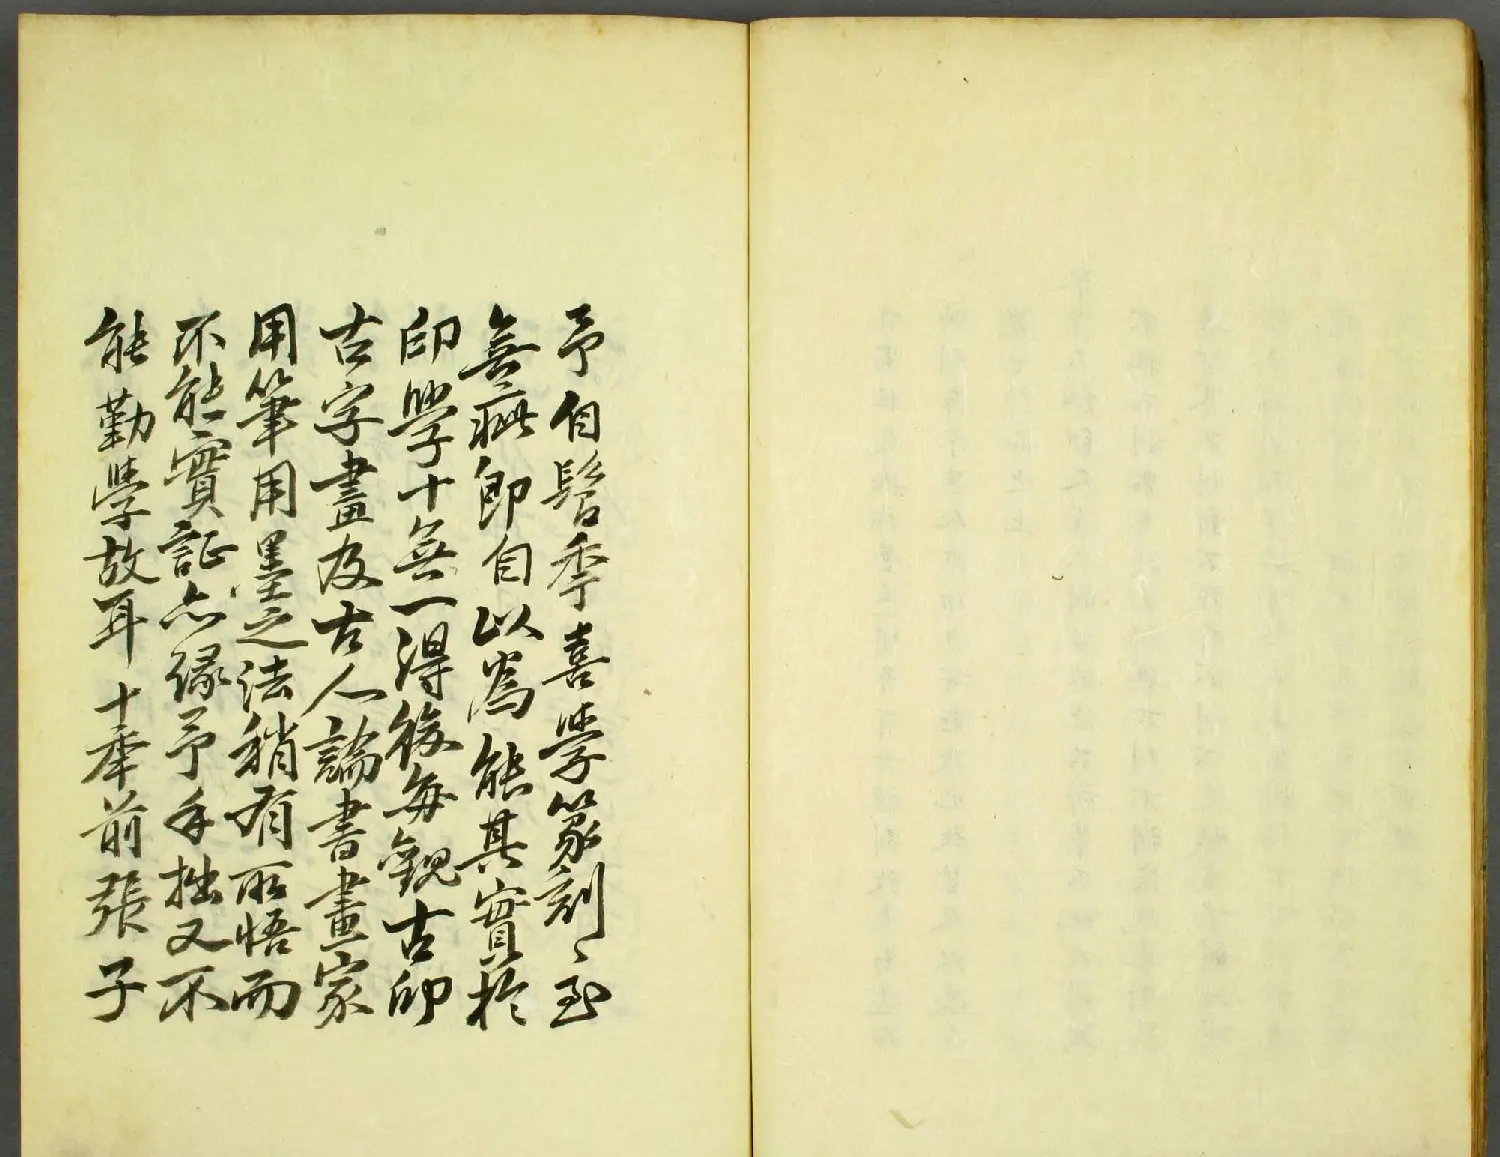 予自髫季喜學篆刻〻至
無疵即自以為能其實於
印學十無一得後每觀古印
古字畫及古人論書畫家
用筆用墨之法稍有所悟而
不能實証亦緣予手拙又不
能勤學故耳十年前張子